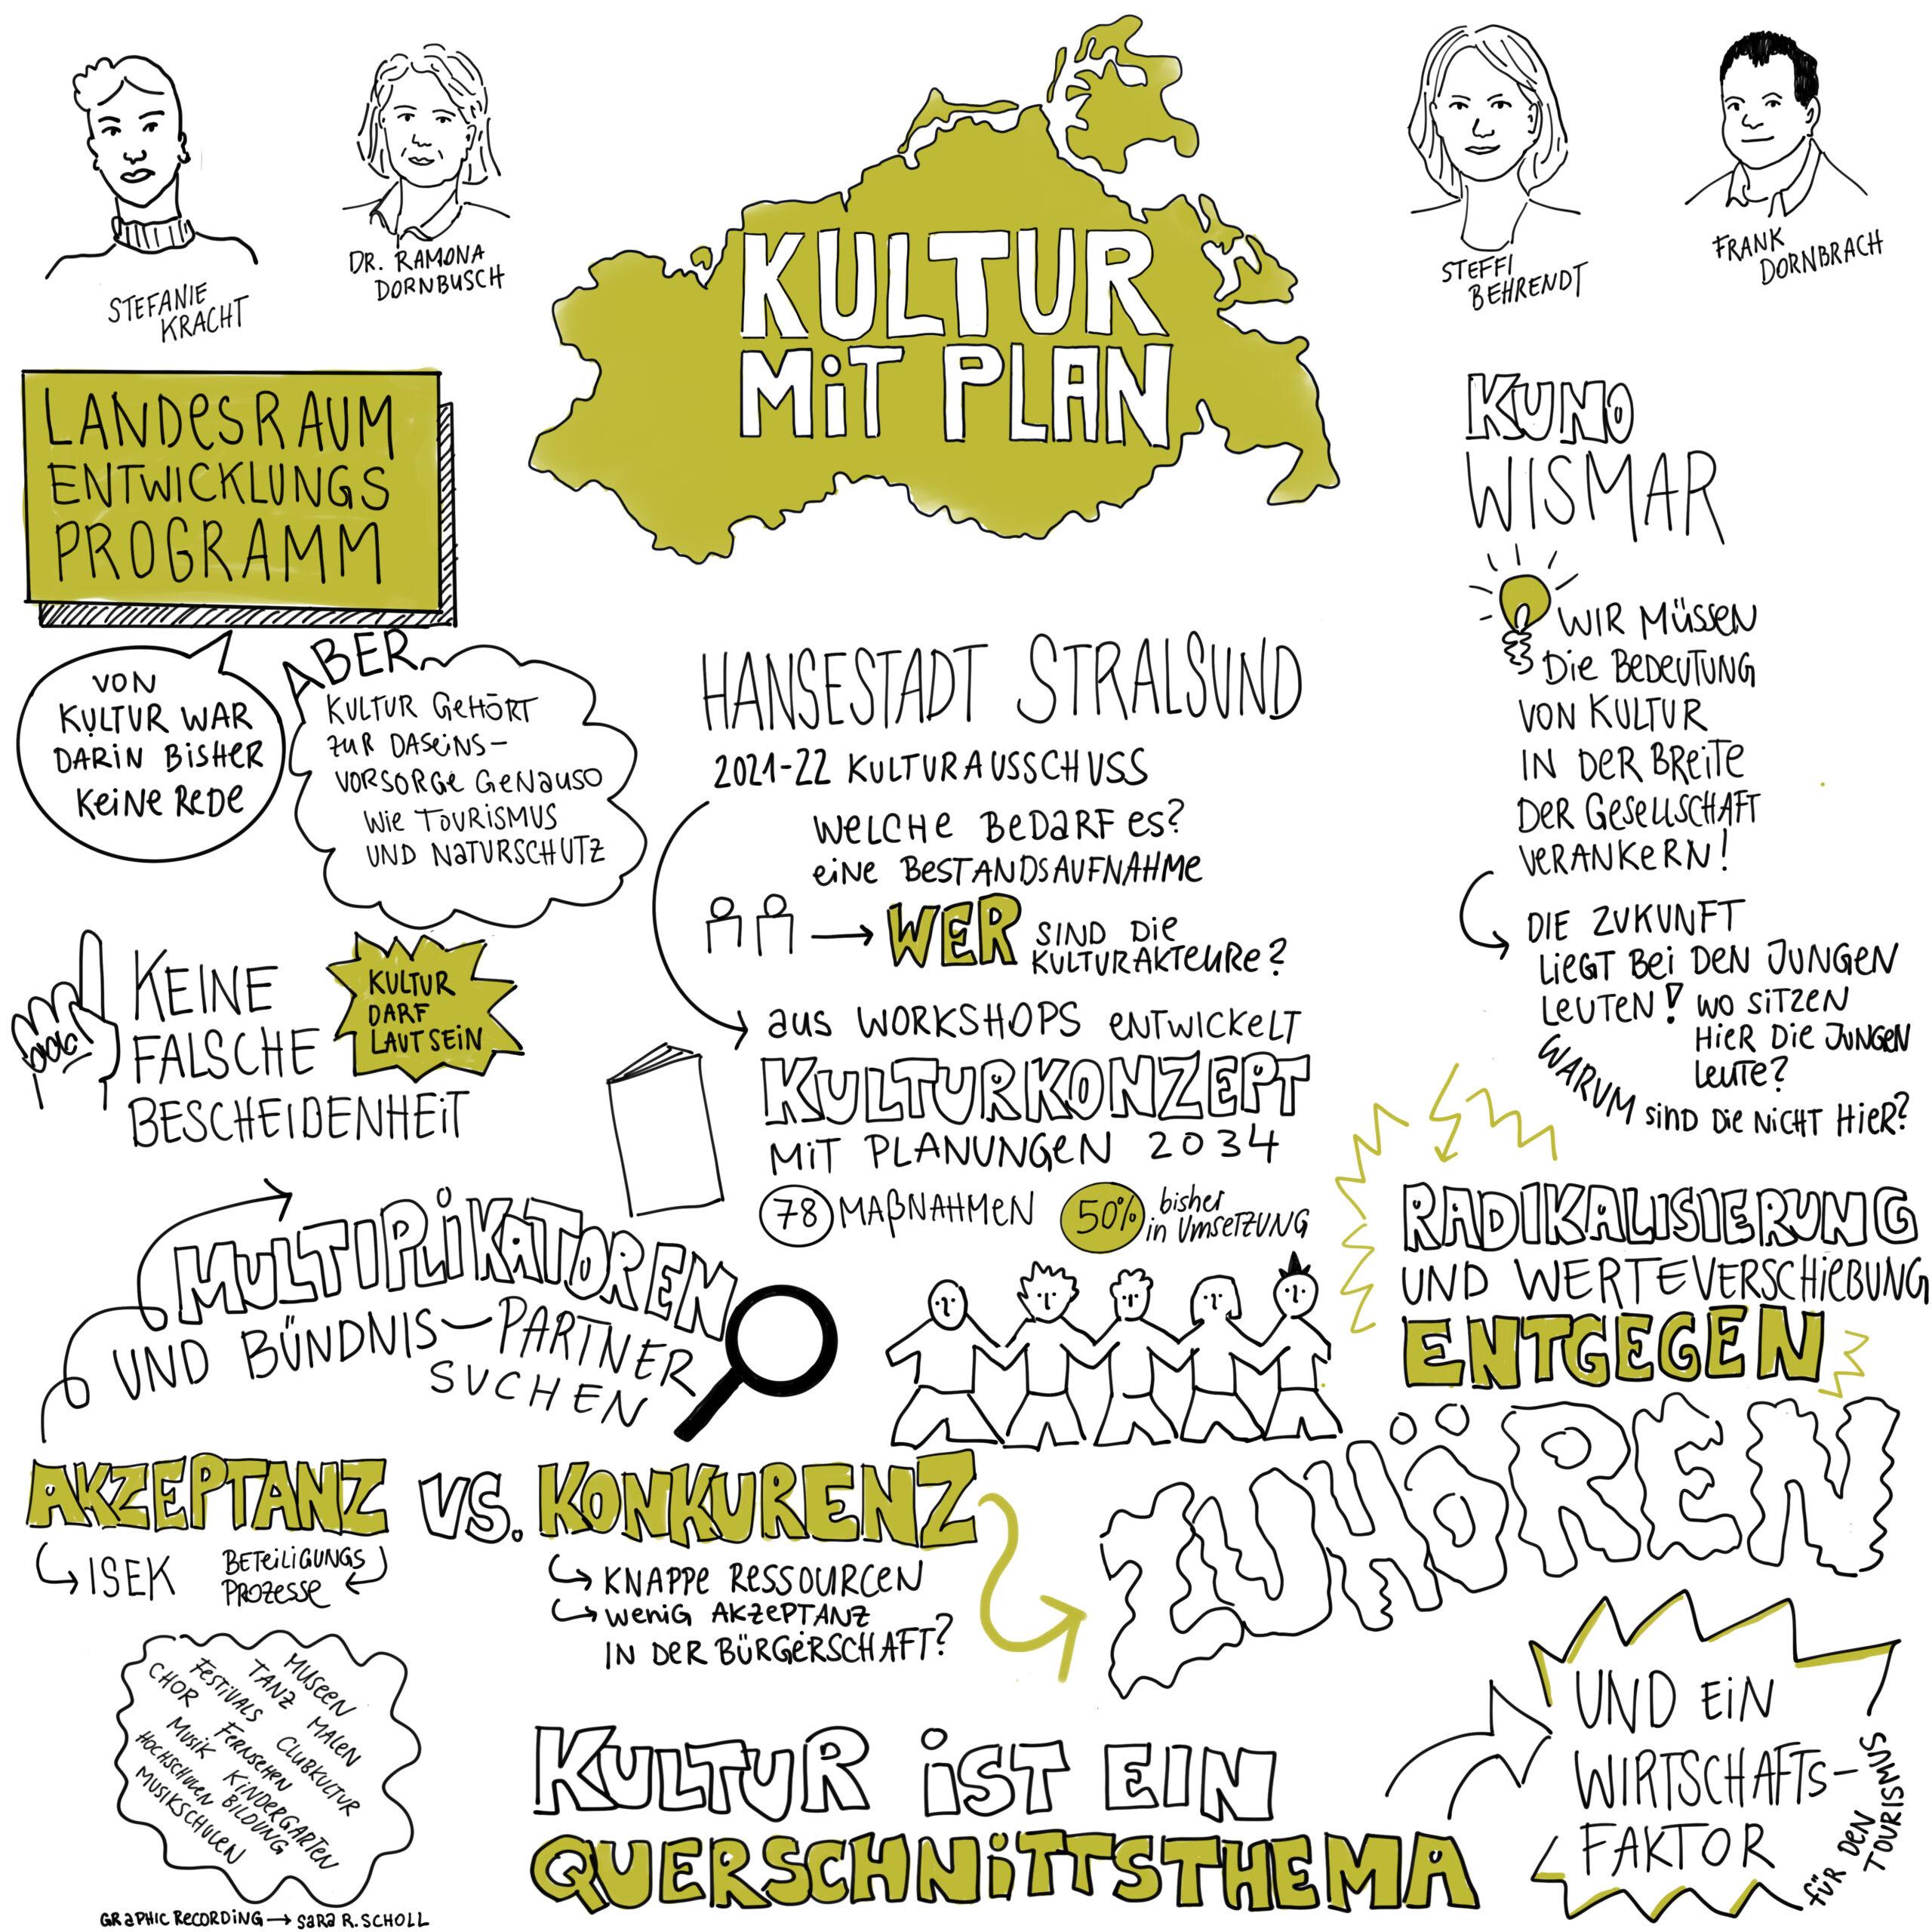 STEFANIE
KRACHT
DR. RAMONA
DORNBUSCH
KULTUR
MIT PLAN
STEFFI
BEHRENDT
FRANK
DORNBRACH
LANDESRAUM
ENTWICKLUNGS
PROGRAMM
VON
KULTUR WAR
DARIN BISHER
KEINE REDE
ABER
KULTUR GEHÖRT
ZUR DASEINS-
VORSORGE GENAUSO
WIE TOURISMUS
UND NATURSCHUTZ
KEINE
FALSCHE
BESCHEIDENHEIT
KULTUR
DARF
LAUT SEIN
HANSESTADT STRALSUND
2021-22 KULTURAUSSCHUSS
WELCHE BEDARF ES?
EINE BESTANDSAUFNAHME
WER SIND DIE
KULTURAKTEURE?
AUS WORKSHOPS ENTWICKELT
KULTURKONZEPT
MIT PLANUNGEN 2034
78 MAßNAHMEN
50% bisher
in UMSETZUNG
KUNO
WISMAR
WIR MÜSSEN
DIE BEDEUTUNG
VON KULTUR
IN DER BREITE
DER GESELLSCHAFT
VERANKERN!
DIE ZUKUNFT
LIEGT BEI DEN JUNGEN
LEUTEN! WO SITZEN
HIER DIE JUNGEN
LEUTE?
WARUM SIND DIE NICHT HIER?
MULTIPLIKATOREN
UND BÜNDNIS-PARTNER
SUCHEN
RADIKALISIERUNG
UND WERTEVERSCHIEBUNG
ENTGEGEN
AKZEPTANZ VS. KONKURENZ
ISEK
BETEILIGUNGS
PROZESSE
KNAPPE RESSOURCEN
WENIG AKZEPTANZ
IN DER BÜRGERSCHAFT?
ZUHÖREN
MUSEEN
TANZ MALEN
FESTIVALS CLUBKULTUR
CHOR FERNSEHEN
MUSIK KINDERGARTEN
HOCHSCHULEN BILDUNG
MUSIKSCHULEN
KULTUR IST EIN
QUERSCHNITTSTHEMA
UND EIN
WIRTSCHAFTS-
FAKTOR
FÜR DEN
TOURISMUS
GRAPHIC RECORDING → SARA R. SCHOLL